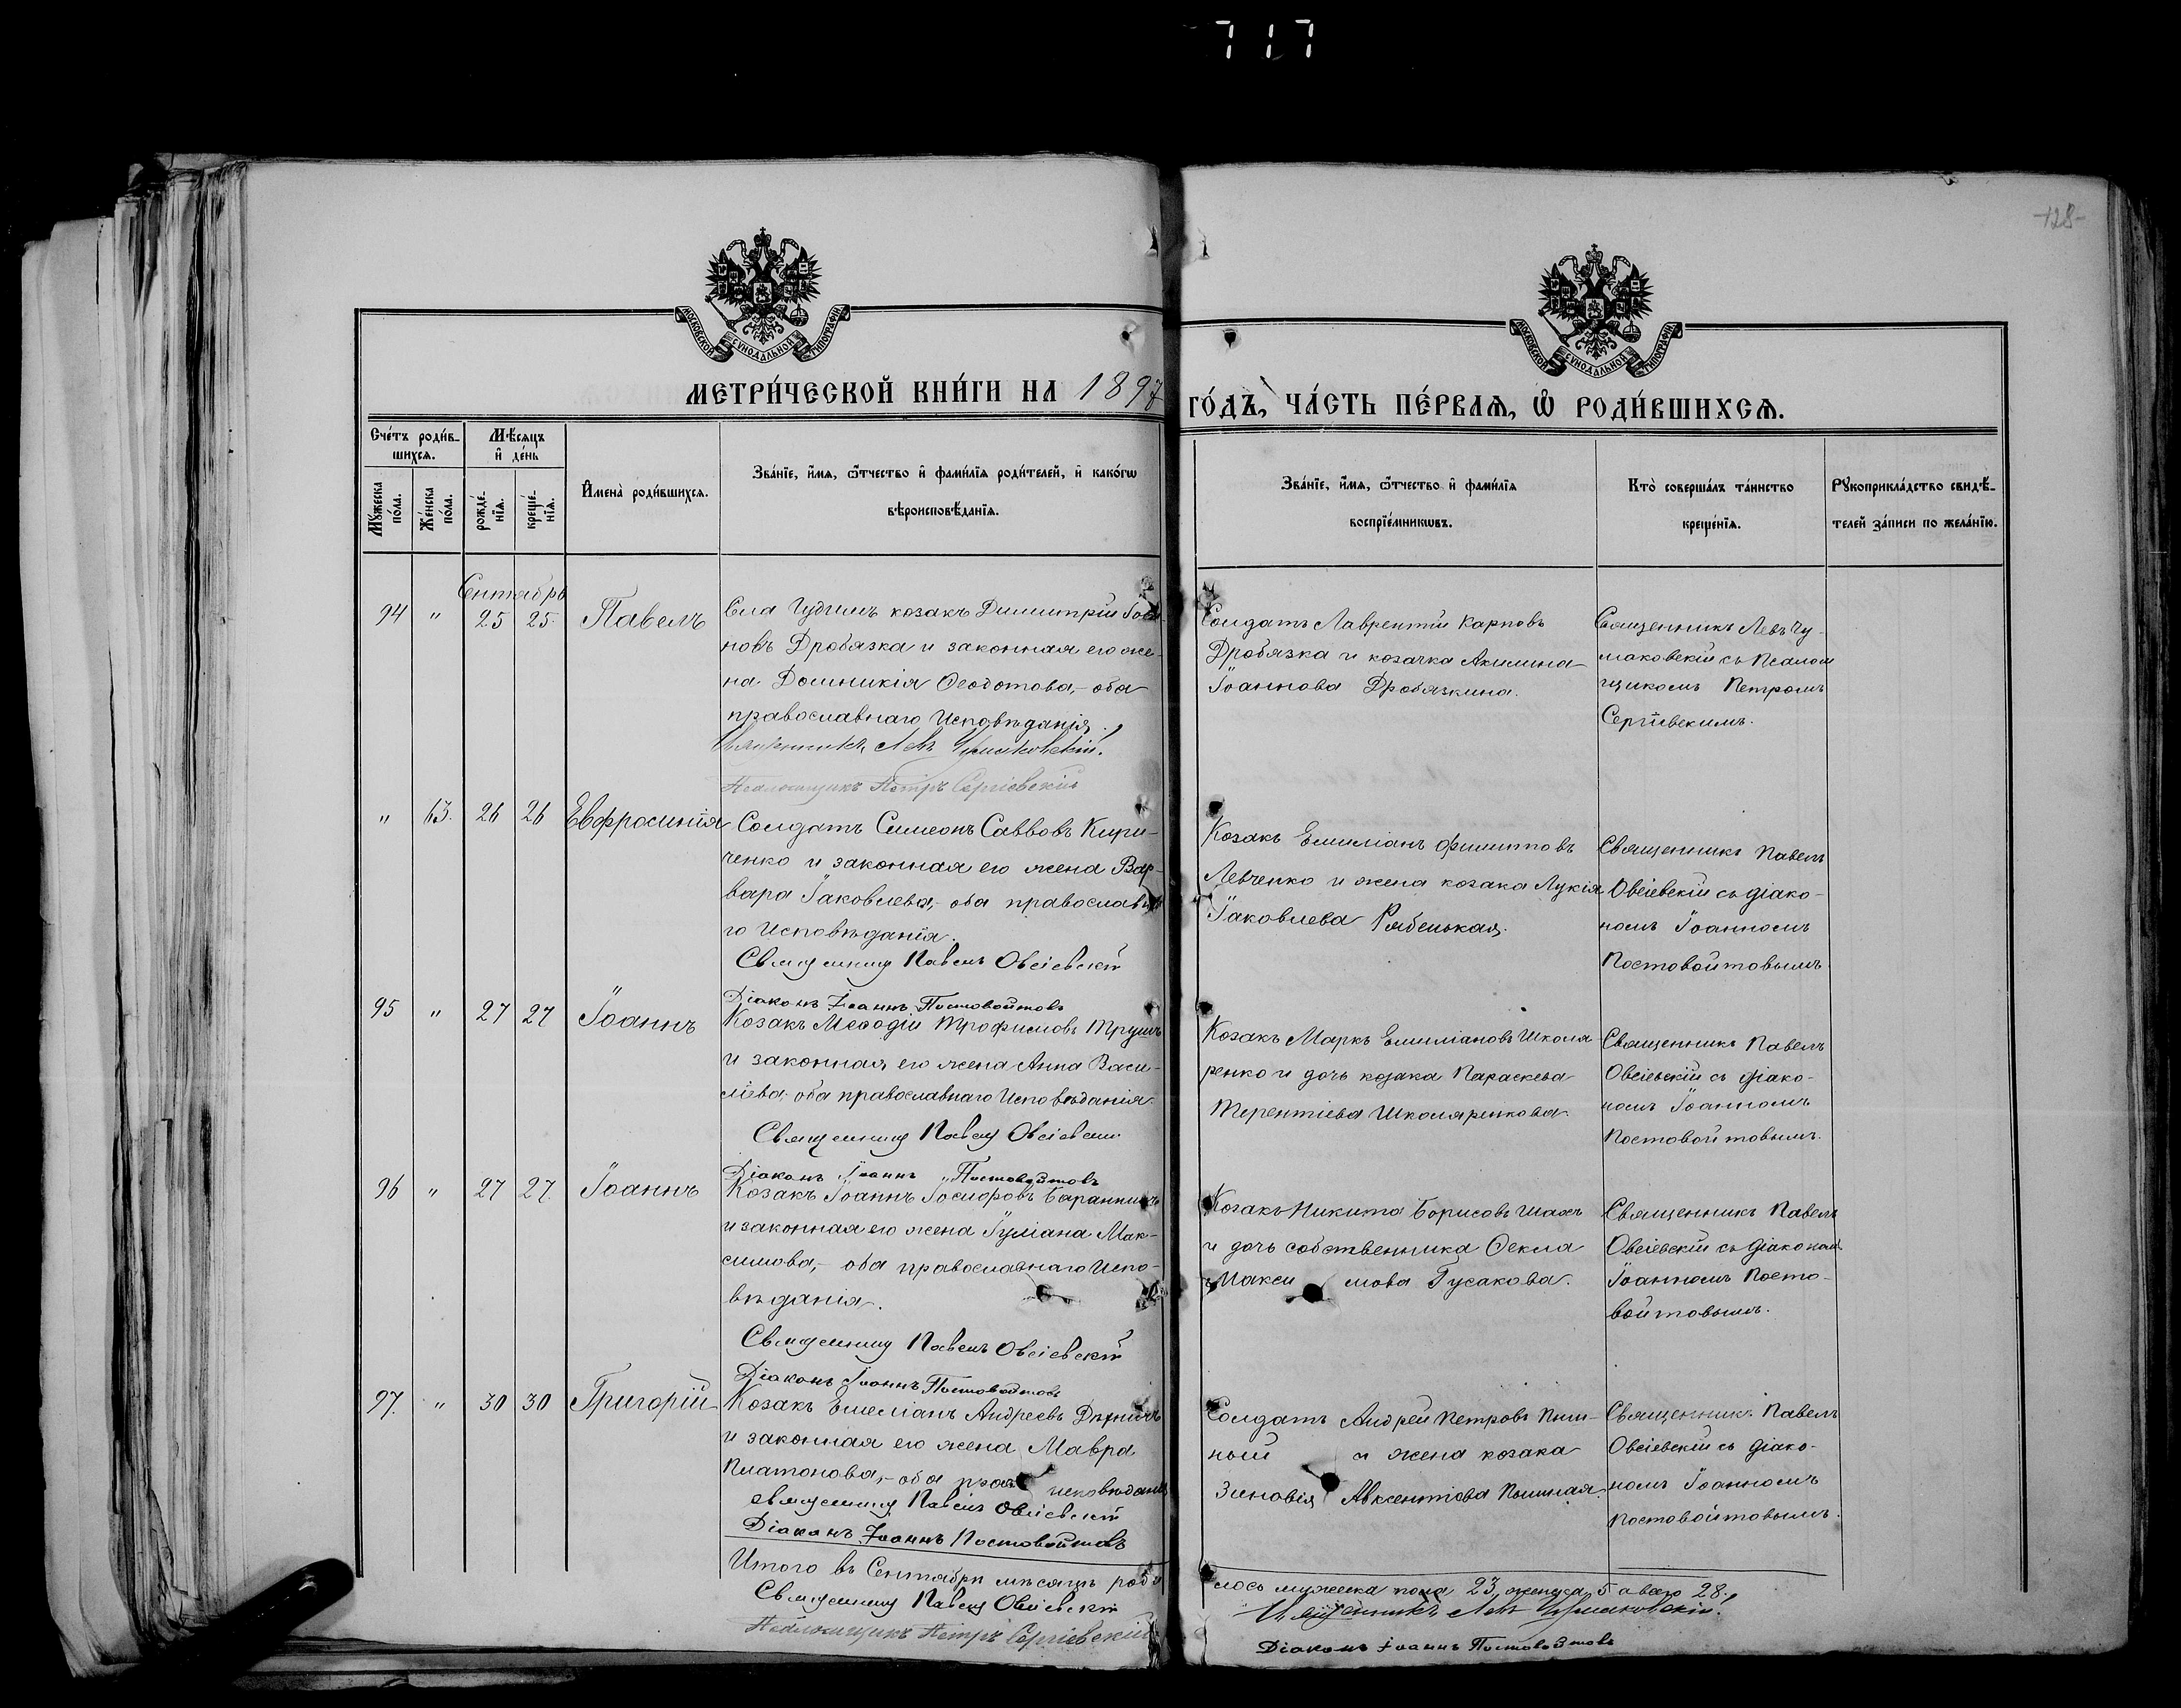 717
-128-
МОСКОВСКОЙ СѴНОДАЛЬНОЙ ТИПОГРАФІИ
МОСКОВСКОЙ СѴНОДАЛЬНОЙ ТИПОГРАФІИ
МЕТРИ́ЧЕСКОЙ КНИ́ГИ НА 1897
ГО́ДЪ, ЧА́СТЬ ПЕ́РВАѦ, Ѡ҆ РОДИ́ВШИХСѦ.
Сче́тъ роди́в-
шихсѧ.
Мѣ́сѧцъ
и҆ де́нь
Мꙋ́жеска
по́ла.
Же́нска
по́ла.
рожде́-
нїѧ.
креще́-
нїѧ.
И҆мена̀ роди́вшихсѧ.
Зва́нїе, и҆́мѧ, ѻ҆́тчество и҆ фами́лїѧ роди́телей, и҆ како́гѡ
вѣроисповѣ́данїѧ.
Зва́нїе, и҆́мѧ, ѻ҆́тчество и҆ фами́лїѧ
воспрїе́мникѡвъ.
Кто̀ соверша́лъ та́инство
креще́нїѧ.
Рꙋкоприкла́дство свидѣ́-
телей за́писи по жела́нїю.
Сентябрь
94 " 25 25 Павелъ
Козакъ Димитрій Іоан-
новъ Дробязка и законная его же-
на Домникія Ѳеодотова,- оба
православнаго Исповѣданія.
Священникъ Левъ Чумаковскій.
Псаломщикъ Петръ Сергіевскій
Солдатъ Лаврентій Карповъ
Дробязка и козачка Акилина
Іоаннова Дробязкина.
Священникъ Левъ Чу-
маковскій съ Псалом
щикомъ Петромъ
Сергіевскимъ.
" 13. 26 26 Евфросинія
Солдатъ Симеонъ Саввовъ Кири-
ченко и законная его жена Вар-
вара Іаковлева,- оба православна
го Исповѣданія.
Священникъ Павелъ Овсіевскій
Діаконъ Іоаннъ Постовойтовъ
Козакъ Емиліанъ Филиповъ
Левченко и жена козака Лукія
Іаковлева Рябенькая.
Священникъ Павелъ
Овсіевскій съ діако-
номъ Іоанномъ
Постовойтовымъ
95 " 27 27 Іоаннъ
Козакъ Меѳодій Трофимовъ Трушъ
и законная его жена Анна Васи-
ліева- оба православнаго Исповѣданія.
Священникъ Павелъ Овсіевскій
Діаконъ Іоаннъ Постовойтовъ
Козакъ Маркъ Емиліановъ Школя-
ренко и дочь козака Параскева
Терентіева Школяренкова.
Священникъ Павелъ
Овсіевскій съ діако-
номъ Іоанномъ
Постовойтовымъ.
96 " 27 27. Іоаннъ
Козакъ Іоаннъ Іосифовъ Баранникъ
и законная его жена Іуліана Мак-
симова,- оба православнаго Испо-
вѣданія.
Священникъ Павелъ Овсіевскій
Діаконъ Іоаннъ Постовойтовъ
Козакъ Никита Борисовъ Шахъ
и дочь собственника Ѳекла
Макси мова Гусакова.
Священникъ Павелъ
Овсіевскій съ діаконом
Іоанномъ Посто-
войтовымъ.
97. " 30 30 Григорій
Козакъ Емеліанъ Андреевъ
и законная его жена Мавра
Платонова,- оба прав исповѣданія
Священникъ Павелъ Овсіевскій
Діаконъ Іоаннъ Постовойтовъ
Солдатъ Андрей Петровъ Пыш-
ный и жена козака
Зиновія Авксентіева Пышная.
Священникъ Павелъ
Овсіевскій съ діако-
номъ Іоанномъ
Постовойтовымъ.
Итого въ Сентябрѣ мѣсяцѣ роди
лось мужеска пола 23, женска 5 а всего 28.
Священникъ Павелъ Овсіевскій
Священникъ Левъ Чумаковскій.
Псаломщикъ Петръ Сергіевскій
Діаконъ Іоаннъ Постовойтовъ